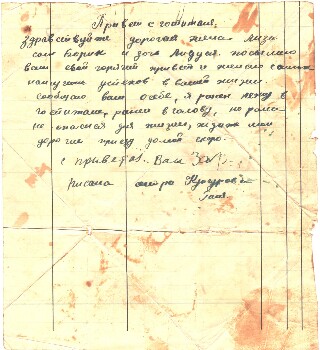 Привет с госпиталя.
Здравствуйте дорогая жена Лиза
сын Борик и дочь Лидуся. посылаю
вам свой горячий привет и желаю самых
наилучших успехов в вашей жизни.
сообщаю вам о себе, я ранен лежу в
госпитале, ранен в голову, но рана
не опасная для жизни, ждите мои
дорогие приезд домой скоро.
с приветом. Вам
Писала сестра